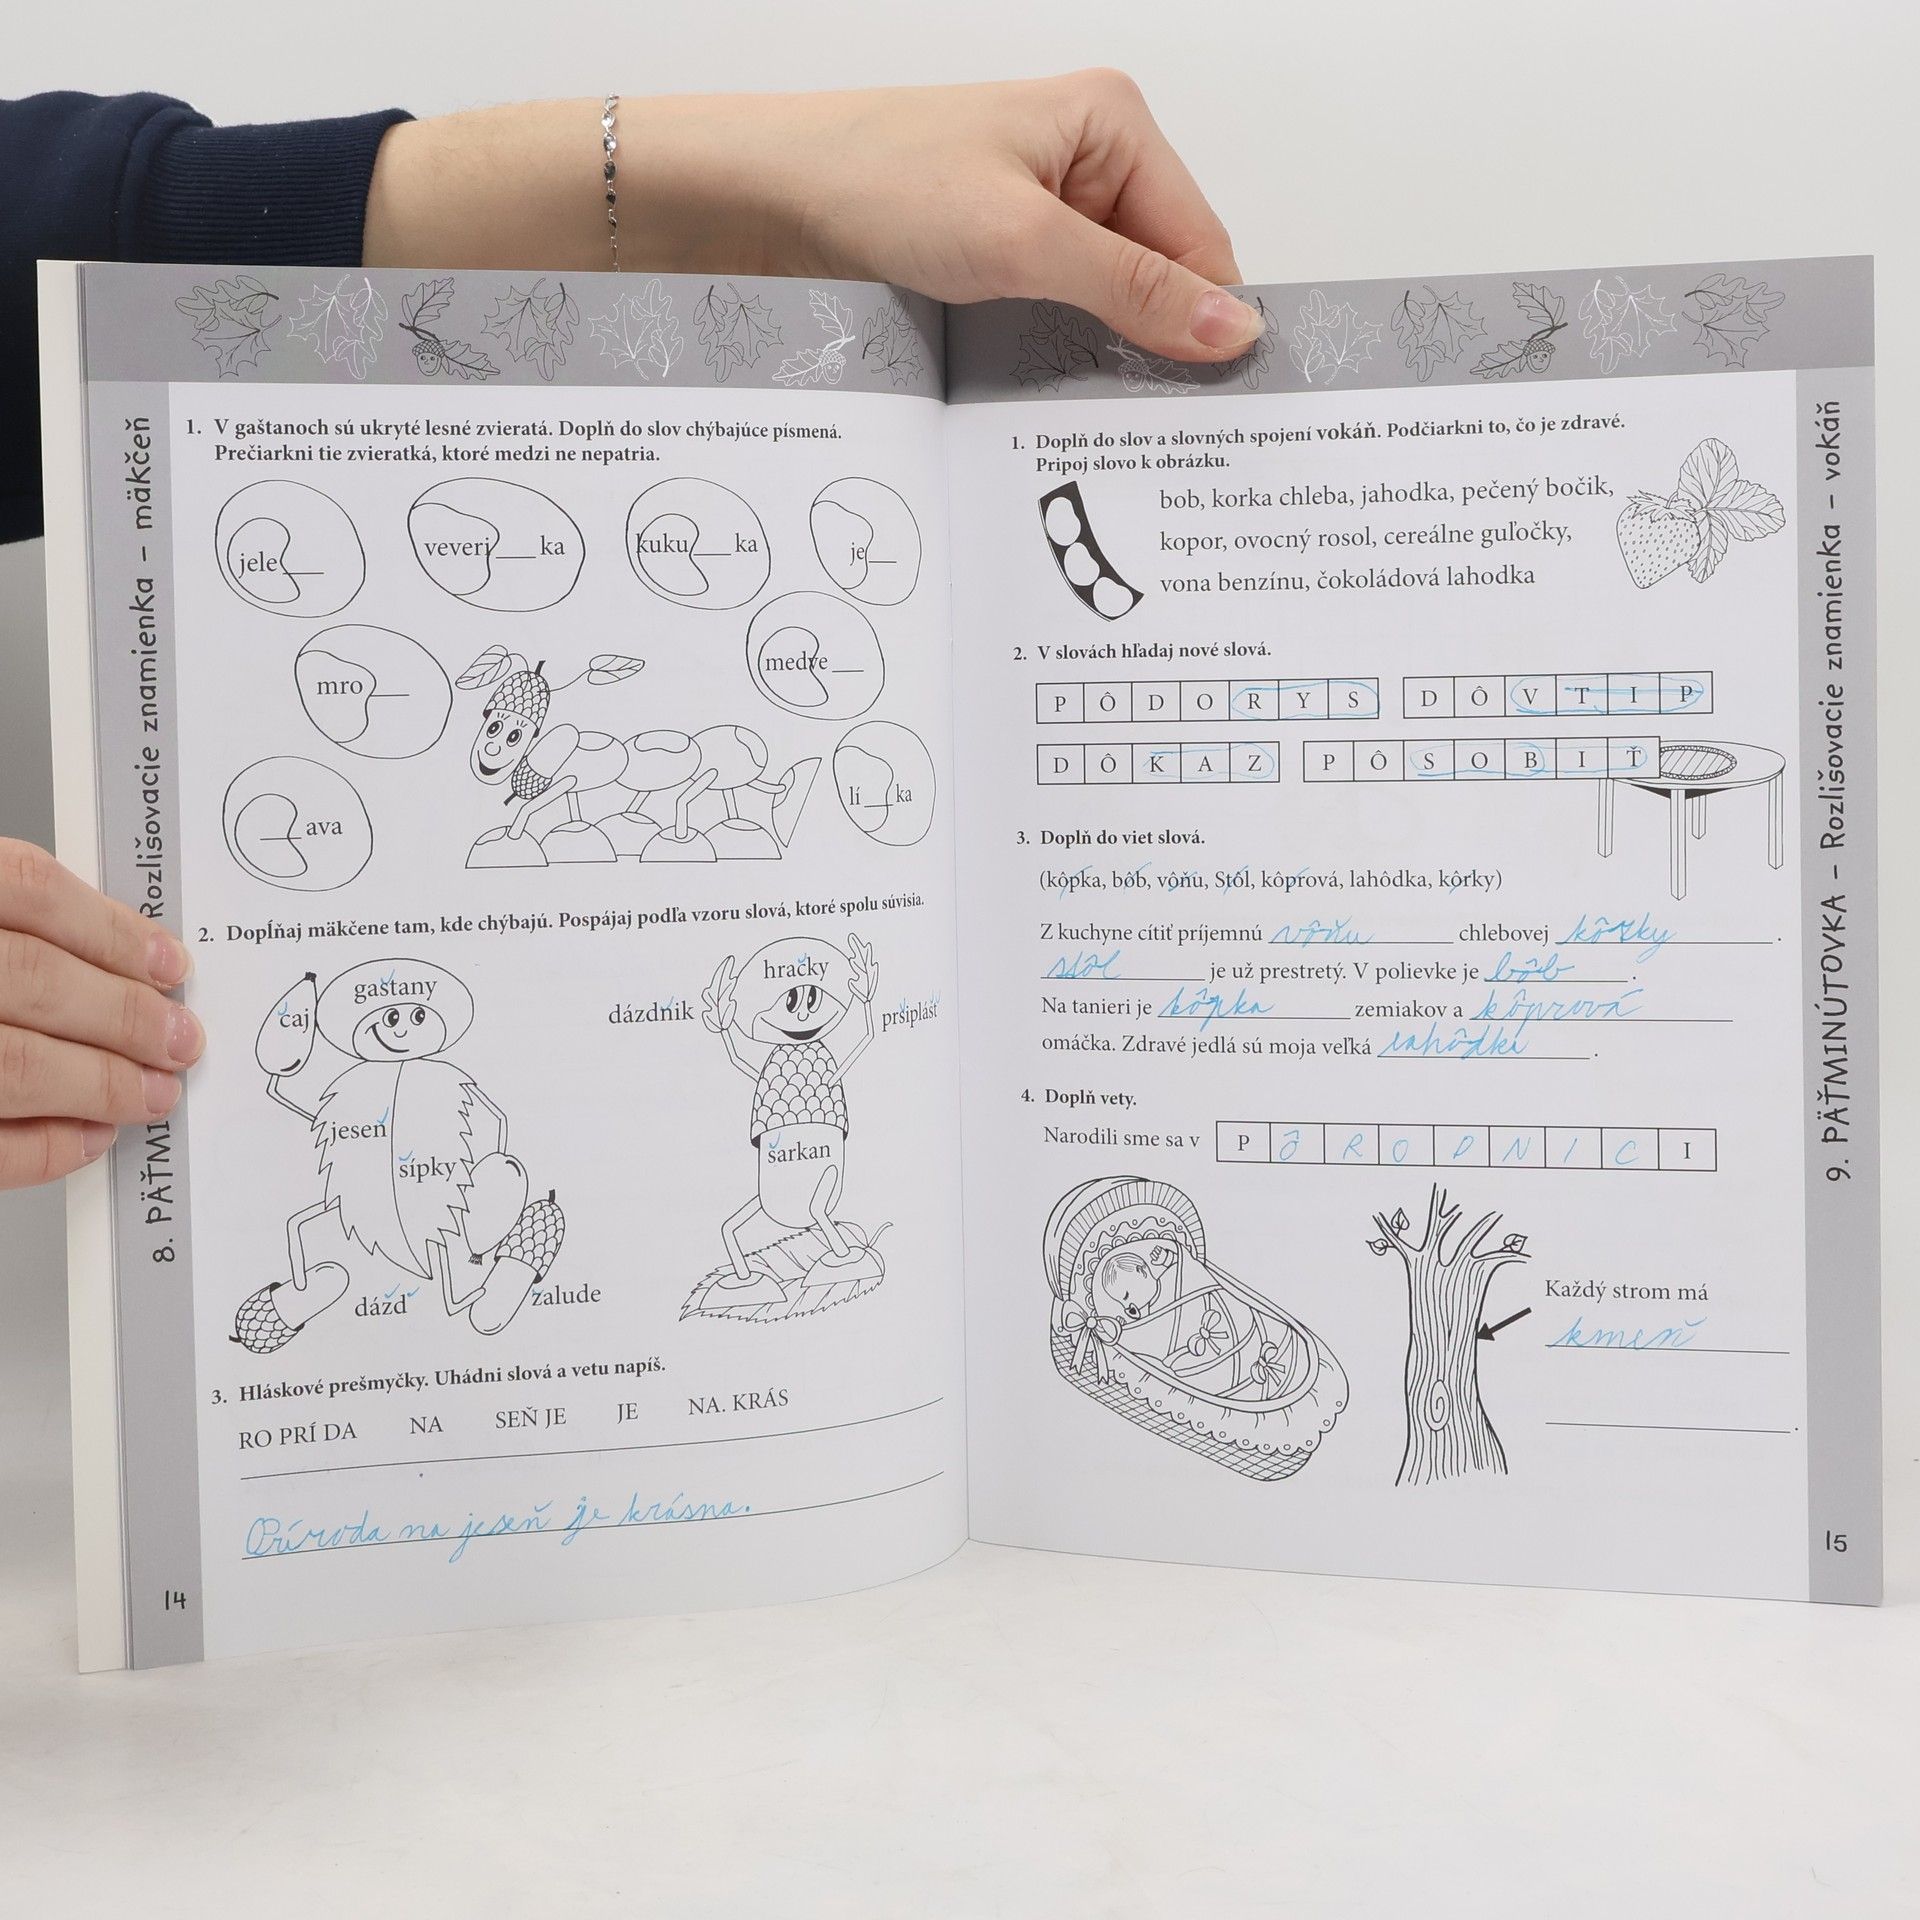 8. PÄŤMI Rozlišovacie znamienka – mäkčeň
1. V gaštanoch sú ukryté lesné zvieratá. Doplň do slov chýbajúce písmená.
Prečiarkni tie zvieratká, ktoré medzi ne nepatria.
jele__
veveri___ka
kuku___ka
je__
mro___
medve__
__ava
lí__ka
2. Dopĺňaj mäkčene tam, kde chýbajú. Pospájaj podľa vzoru slová, ktoré spolu súvisia.
čaj
gaštany
hračky
dázdňik
pršiplášť
jeseň
šípky
šarkan
dážď
žalude
3. Hláskové prešmyčky. Uhádni slová a vetu napíš.
RO PRÍ DA NA SEŇ JE JE NA. KRÁS
Príroda na jeseň je krásna.
14
1. Doplň do slov a slovných spojení vokáň. Podčiarkni to, čo je zdravé.
Pripoj slovo k obrázku.
bob, korka chleba, jahodka, pečený bočik,
kopor, ovocný rosol, cereálne guľočky,
vona benzínu, čokoládová lahodka
2. V slovách hľadaj nové slová.
P Ô D O R Y S D Ô V T I P
D Ô K A Z P Ô S O B I Ť
3. Doplň do viet slová.
(kôpka, bôb, vôňu, Stôl, kôprová, lahôdka, kôrky)
Z kuchyne cítiť príjemnú vôňu chlebovej kôrky.
stôl je už prestretý. V polievke je bôb.
Na tanieri je kôpka zemiakov a kôprová
omáčka. Zdravé jedlá sú moja veľká lahôdka.
4. Doplň vety.
Narodili sme sa v P Ô R O D N I C I
Každý strom má
kmeň
.
15
9. PÄŤMINÚTOVKA – Rozlišovacie znamienka – vokáň